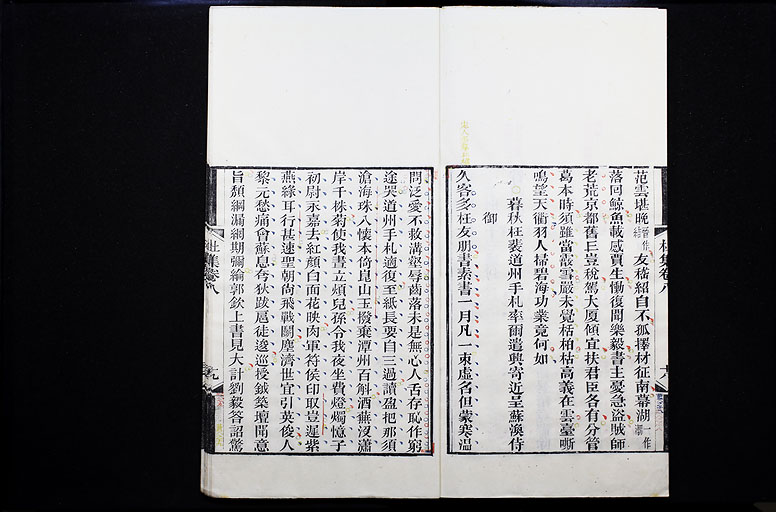 范雲堪晚晉作結友嵇紹自不孤擇材征南幕湖一作潮
落回鯨魚載感賈生慟復聞樂毅書主憂急盜賊師
老荒京都舊丘豈稅駕大厦傾宜扶君臣各有分管
葛本時須雖當霰雪嚴未覺栝柏枯高義在雲臺嘶
鳴望天衢羽人掃碧海功業竟何如
暮秋枉裴道州手札率爾遣興寄近呈蘇渙侍
御
久客多枉友朋書素書一月凡一束虛名但蒙寒溫
問泛愛不救溝壑辱齒落未是無心人舌存恥作窮
途哭道州手札適復至紙長要自三過讀盈把那須
滄海珠入懷本倚崑山玉撥棄潭州百斛酒蕪沒瀟
岸千株菊使我晝立煩兒孫令我夜坐費燈燭憶子
初尉永嘉去紅顏白面花映肉軍符侯印取豈遲紫
燕綠耳行甚速聖朝尚飛戰鬭塵濟世宜引英俊人
黎元愁痛會蘇息夸狄跋扈徒逡巡授鉞築壇聞意
旨頹綱漏網期彌綸郭欽上書見大計劉毅答詔驚
杜集卷八
十九
杜集卷八